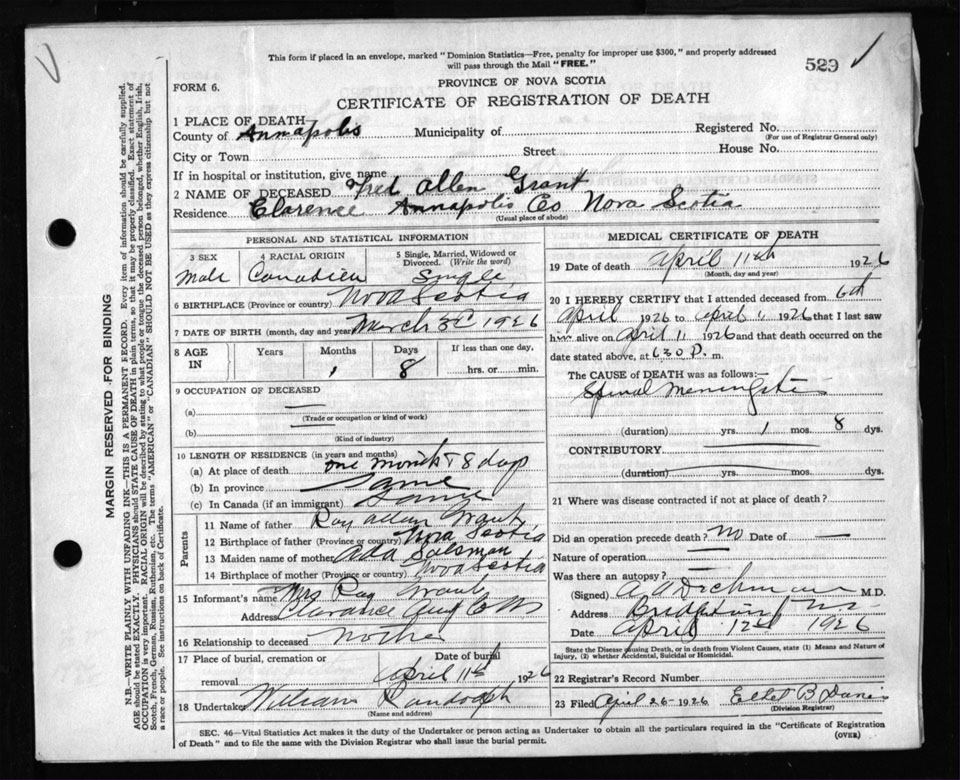 This form if placed in an envelope, marked "Dominion Statistics—Free, penalty for improper use $300," and properly addressed
will pass through the Mail "FREE."
529
PROVINCE OF NOVA SCOTIA
FORM 6.
CERTIFICATE OF REGISTRATION OF DEATH
1 PLACE OF DEATH
County of Annapolis Municipality of Registered No.
(For use of Registrar General only)
City or Town Street House No.
If in hospital or institution, give name
2 NAME OF DECEASED Fred Allen Grant
Residence Clarence Annapolis Co Nova Scotia
(Usual place of abode)
PERSONAL AND STATISTICAL INFORMATION
3 SEX 4 RACIAL ORIGIN 5 Single, Married, Widowed or
Divorced. (Write the word)
Male Canadien Single
6 BIRTHPLACE (Province or country) Nova Scotia
7 DATE OF BIRTH (month, day and year) March 3d 1926
8 AGE IN Years Months Days If less than one day,
1 8 hrs. or min.
9 OCCUPATION OF DECEASED
(a) —
(Trade or occupation or kind of work)
(b) —
(Kind of industry)
10 LENGTH OF RESIDENCE (in years and months)
(a) At place of death one month & 8 days
(b) In province Same
(c) In Canada (if an immigrant) Same
Parents
11 Name of father Ray Allen Grant
12 Birthplace of father (Province or country) Nova Scotia
13 Maiden name of mother Ada Salsman
14 Birthplace of mother (Province or country) Nova Scotia
15 Informant's name Mrs Ray Grant
Address Clarance
16 Relationship to deceased Mother
17 Place of burial, cremation or removal Date of burial
April 11th 1926
18 Undertaker William Randolph
(Name and address)
MEDICAL CERTIFICATE OF DEATH
19 Date of death April 11th 1926
(Month, day and year)
20 I HEREBY CERTIFY that I attended deceased from 6th
April 1926 to April 11 1926 that I last saw
him alive on April 11 1926 and that death occurred on the
date stated above, at 630 P. m.
The CAUSE OF DEATH was as follows:—
Spinal Meningitis
(duration) yrs. 1 mos. 8 dys.
CONTRIBUTORY
(duration) yrs. mos. dys.
21 Where was disease contracted if not at place of death?
Did an operation precede death? No Date of —
Nature of operation —
Was there an autopsy? —
(Signed) M.D.
Address
Date April 12th 1926
State the Disease causing Death, or in death from Violent Causes, state (1) Means and Nature of
Injury, (2) whether Accidental, Suicidal or Homicidal.
22 Registrar's Record Number
23 Filed April 26-1926
(Division Registrar)
SEC. 46—Vital Statistics Act makes it the duty of the Undertaker or person acting as Undertaker to obtain all the particulars required in the "Certificate of Registration
of Death" and to file the same with the Division Registrar who shall issue the burial permit.
(OVER)
MARGIN RESERVED FOR BINDING
N.B.—WRITE PLAINLY WITH UNFADING INK—THIS IS A PERMANENT RECORD. Every item of information should be carefully supplied.
AGE should be stated EXACTLY. PHYSICIANS should STATE CAUSE OF DEATH in plain terms, so that it may be properly classified. Exact statement of
OCCUPATION is very important. RACIAL ORIGIN will be described by stating to what people or tongue the deceased person belonged, whether English, Irish,
Scotch, French, German, Russian, Ruthenian, etc. The terms "AMERICAN" or "CANADIAN" SHOULD NOT BE USED as they express citizenship but not
a race or people. See instructions on back of Certificate.